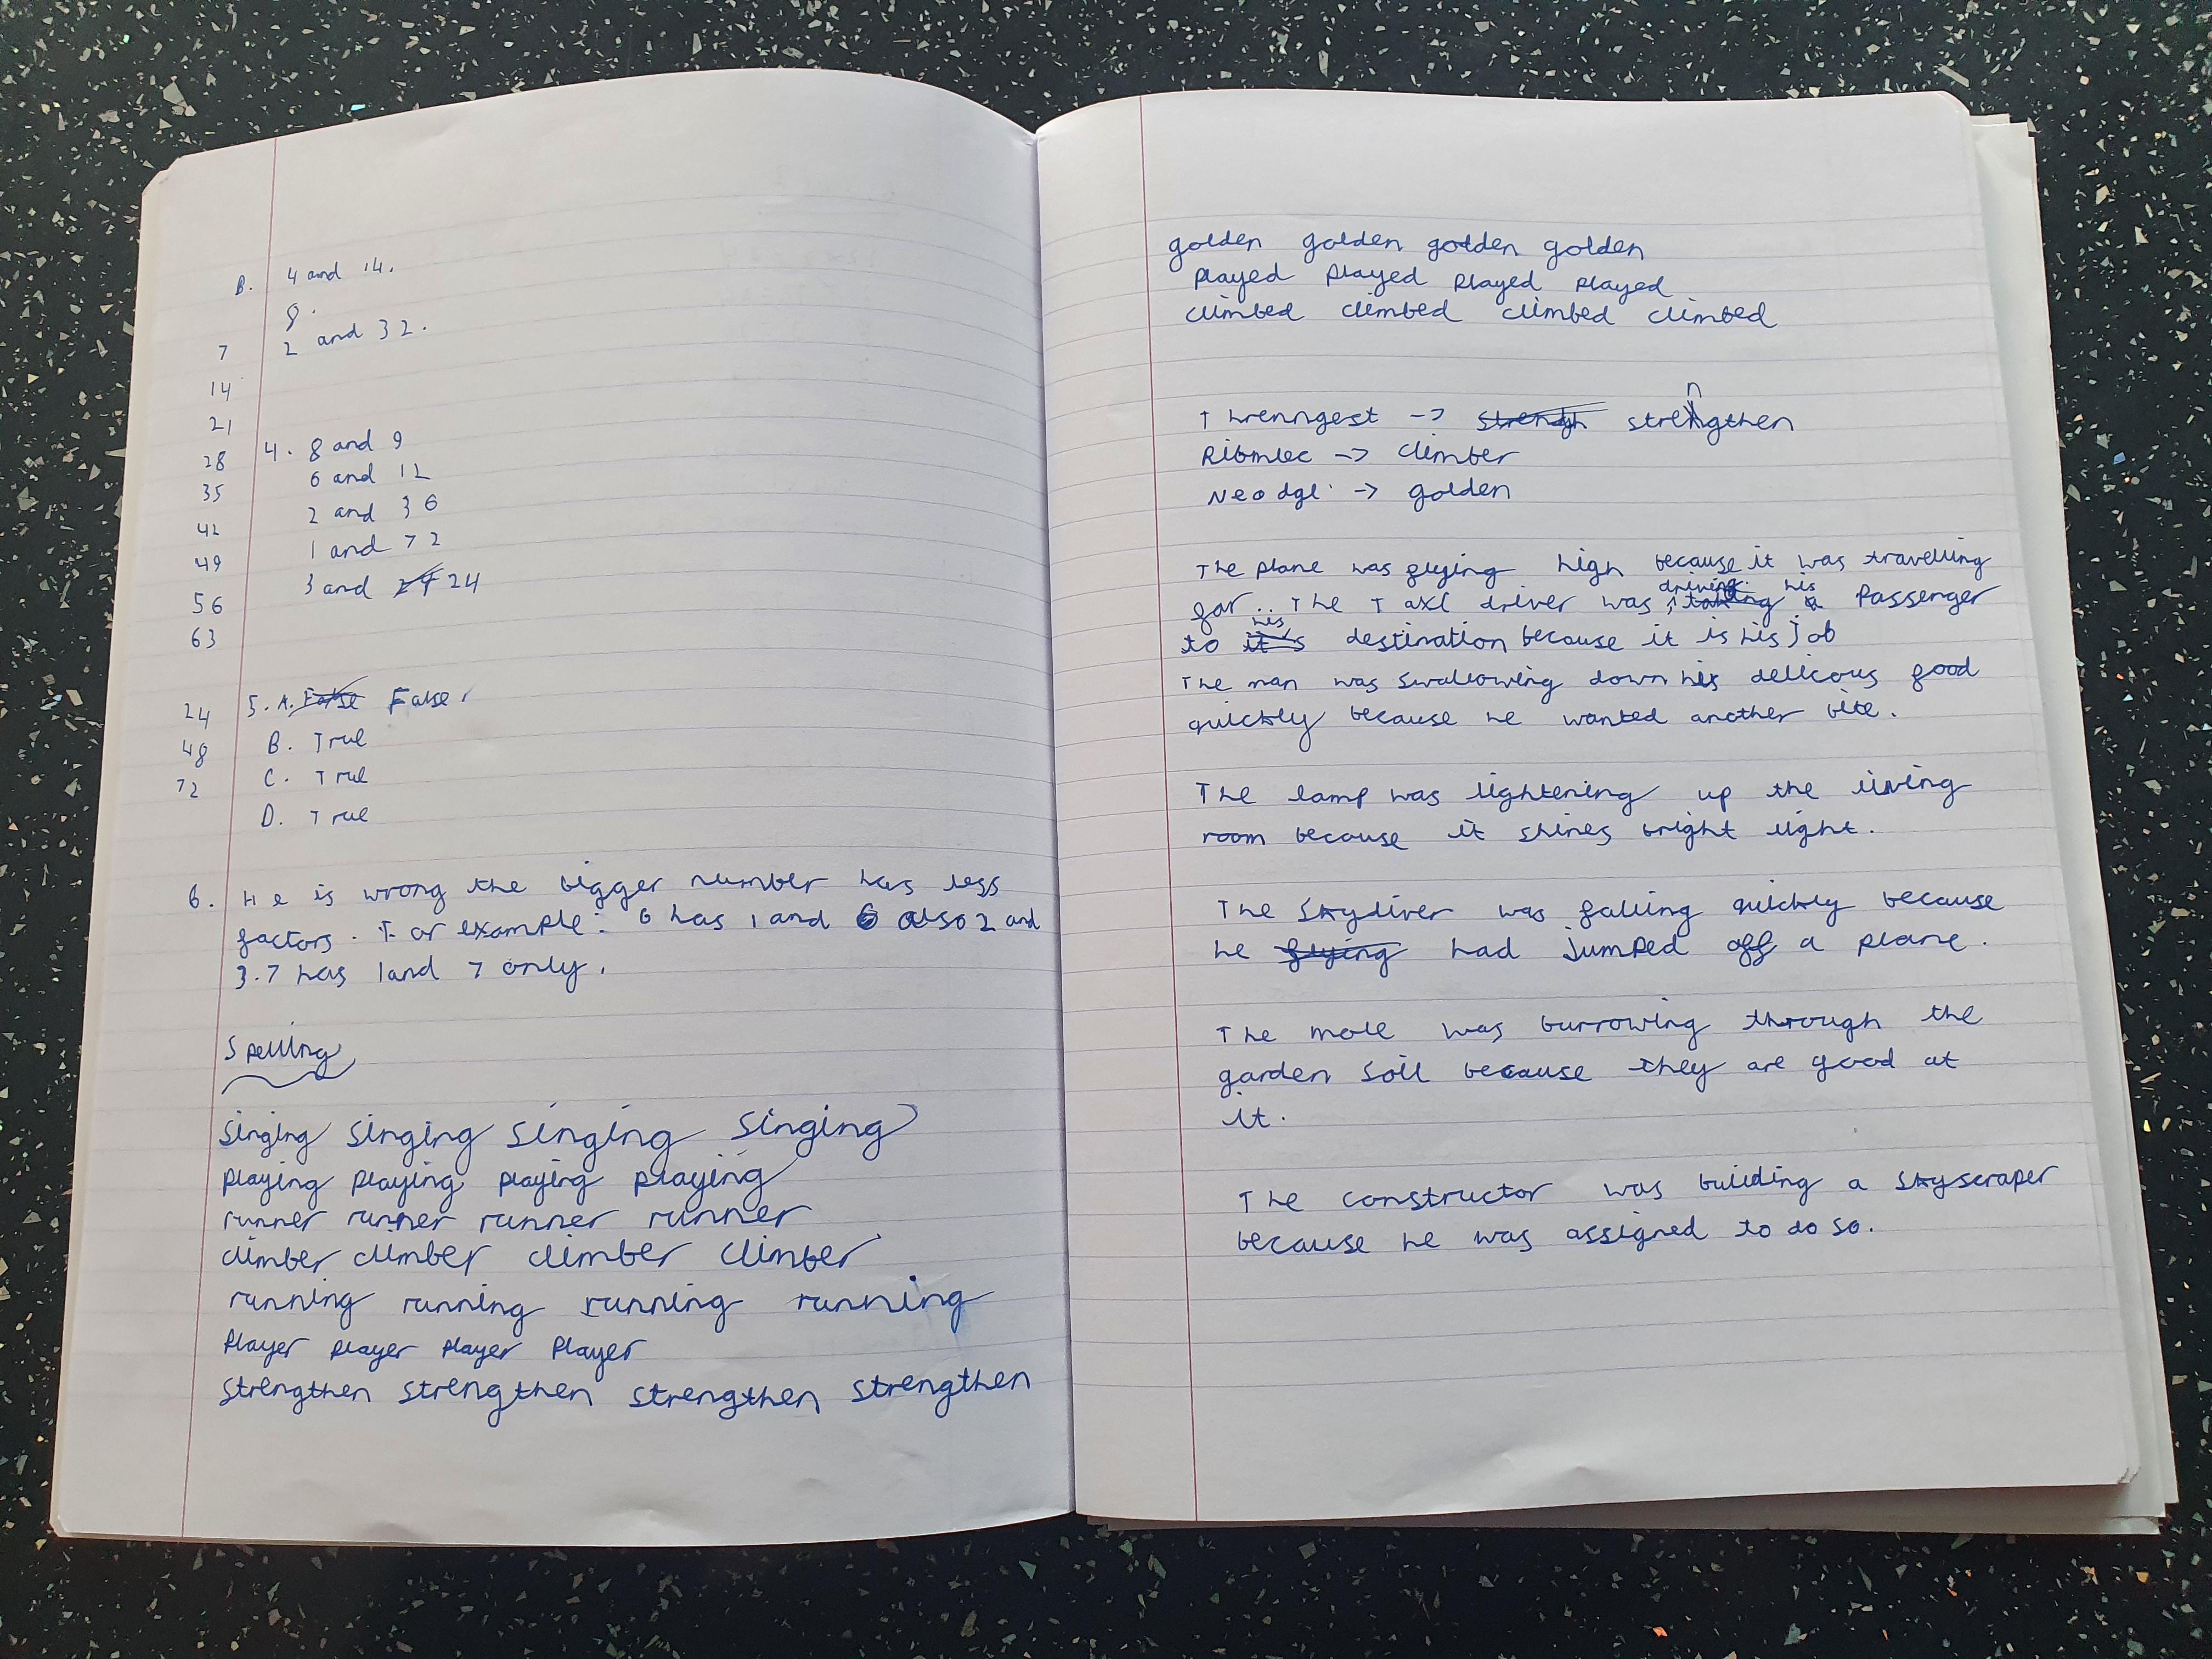 B. 4 and 14.
8.
2 and 32.
7
14
21
28
35
42
49
56
63
4. 8 and 9
6 and 12
2 and 36
1 and 72
3 and 24 24
24
48
72
5. A. False False.
B. True
C. True
D. True
6. He is wrong the bigger number has less
factors. For example: 6 has 1 and 6 also 2 and
3. 7 has 1 and 7 only.
Spelling
singing singing singing singing
playing playing playing playing
runner runner runner runner
climber climber climber climber
running running running running
player player player player
strengthen strengthen strengthen strengthen
golden golden golden golden
played played played played
climbed climbed climbed climbed
Threnngest -> strengh strengthen
Ribmlec -> climber
Neodgl -> golden
The plane was flying high because it was travelling
far.. The Taxi driver was driving taking his a Passenger
to it's his destination because it is his job
The man was swallowing down his delicous food
quickly because he wanted another bite.
The lamp was lightening up the living
room because it shines bright light.
The skydiver was falling quickly because
he flying had jumped off a plane.
The mole was burrowing through the
garden soil because they are good at
it.
The constructor was building a skyscraper
because he was assigned to do so.